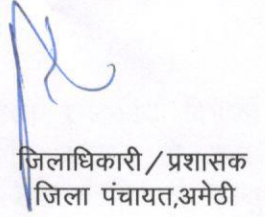 जिलाधिकारी / प्रशासक
जिला पंचायत,अमेठी